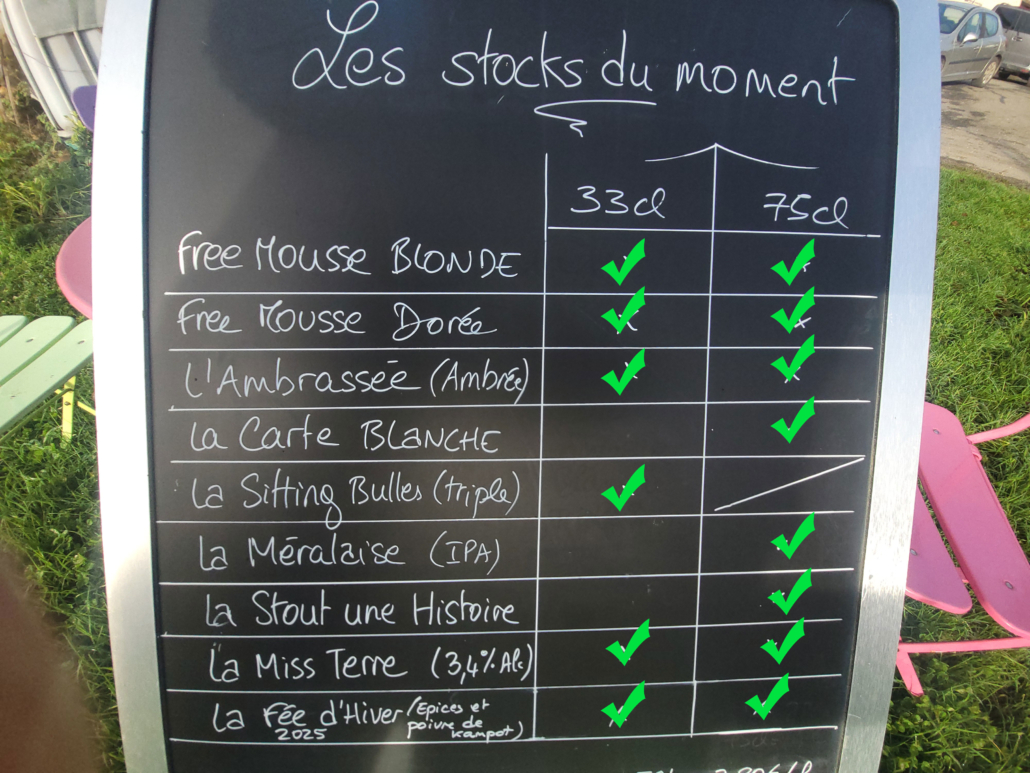 Les stocks du moment
33cl 75cl
Free Mousse BLONDE
Free Mousse Dorée
L'Ambrassée (Ambrée)
La Carte BLANCHE
La Sitting Bulles (triple)
La Méralaise (IPA)
La Stout une Histoire
La Miss Terre (3,4% Alc)
La Fée d'Hiver (Epices et
2025 poivre de
kampot)